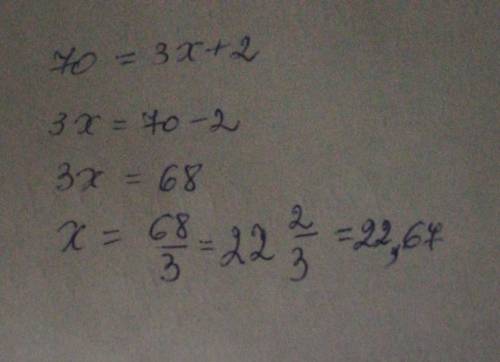 70 = 3x+2
3x = 70-2
3x = 68
x = 68/3 = 22 2/3 = 22,67